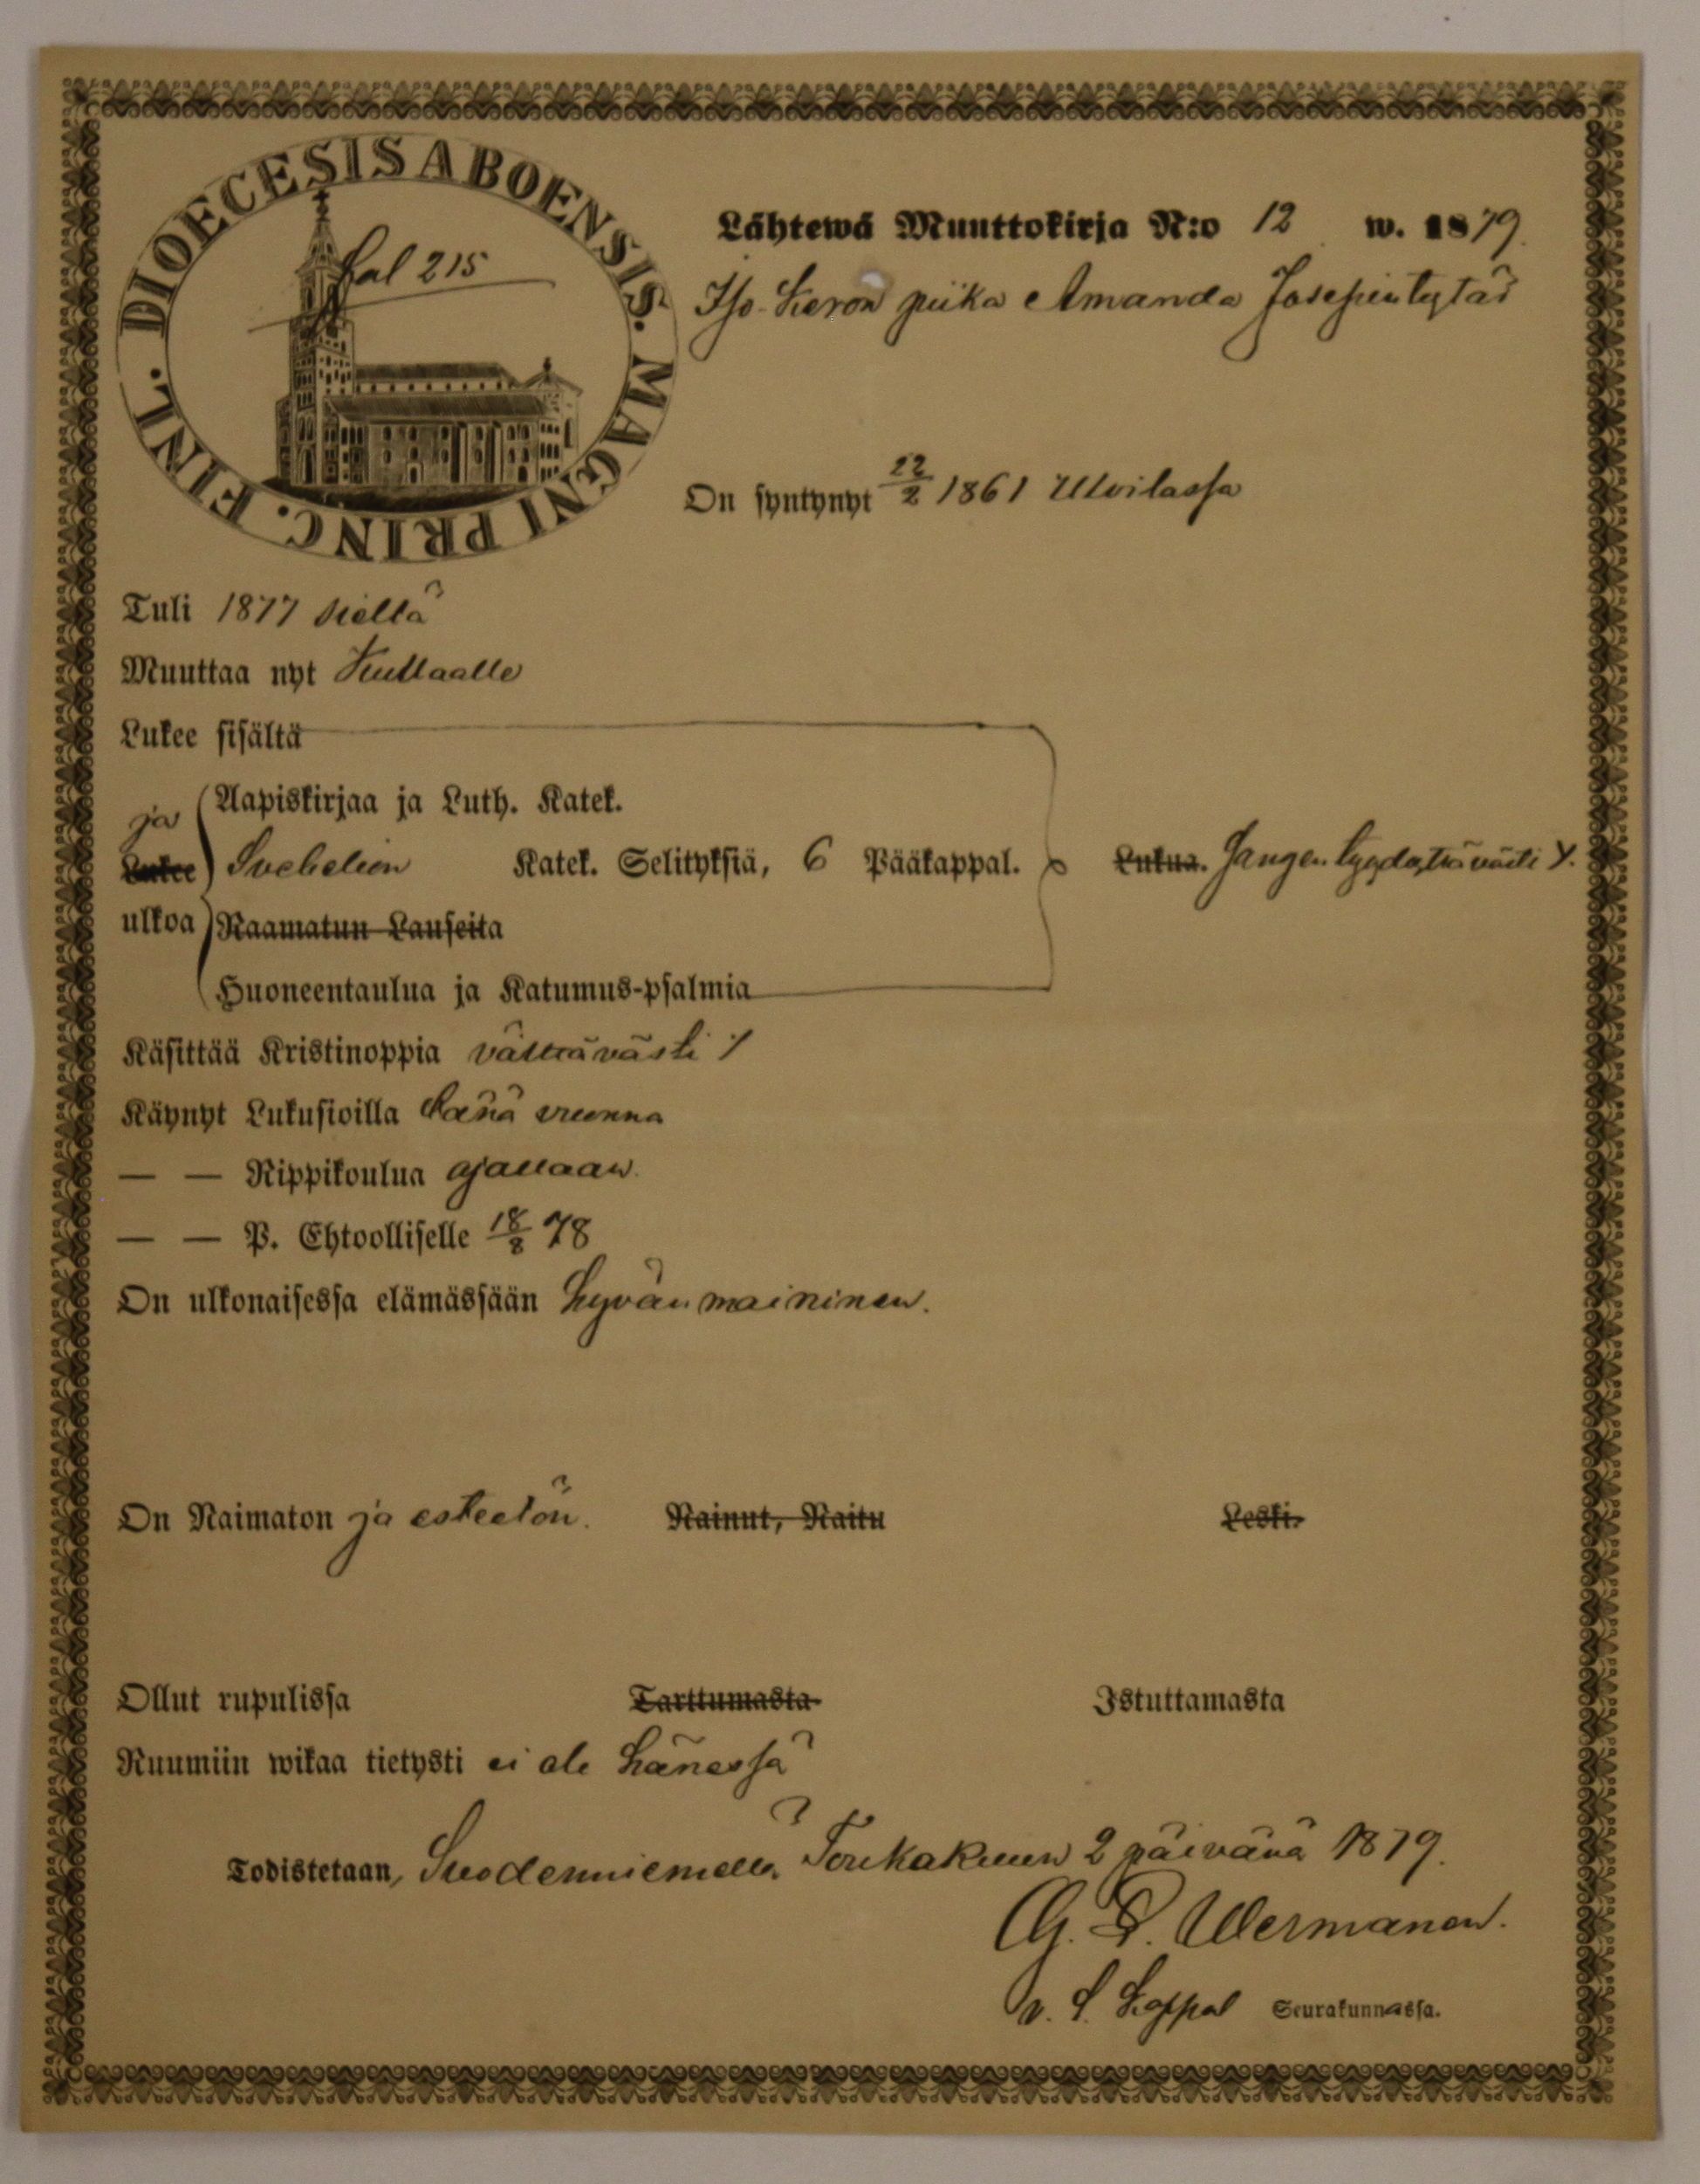 DIOECESIS ABOENSIS. MAGNI PRINC. FINL.
Lähtewä Muuttokirja N:o 12 w. 1879.
215
Iso-Keron piika Amanda Josepintytär
On syntynyt 22/2 1861 Ulvilassa
Tuli 1877 sieltä
Muuttaa nyt Kullaalle
Lukee sisältä
ja
Aapiskirjaa ja Luth. Katek.
Lukee Svebelion Katek. Selityksiä, 6 Pääkappal. Lukua.
ulkoa
Raamatun Lauseita
Huoneentaulua ja Katumus-psalmia
Käsittää Kristinoppia välttävästi
Käynyt Lukusioilla tänä vuonna
— — Rippikoulua ajallaan.
— — P. Ehtoolliselle 18/8 78
On ulkonaisessa elämässään hyvänmaininen.
On Naimaton ja esteetön. Nainut, Naitu Leski.
Ollut rupulissa Tarttumasta Istuttamasta
Ruumiin wikaa tietysti ei ole hänessä
Todistetaan, Suodenniemellä Toukokuun 2 päivänä 1879.
G. Wermanen.
v. Kappal Seurakunnassa.